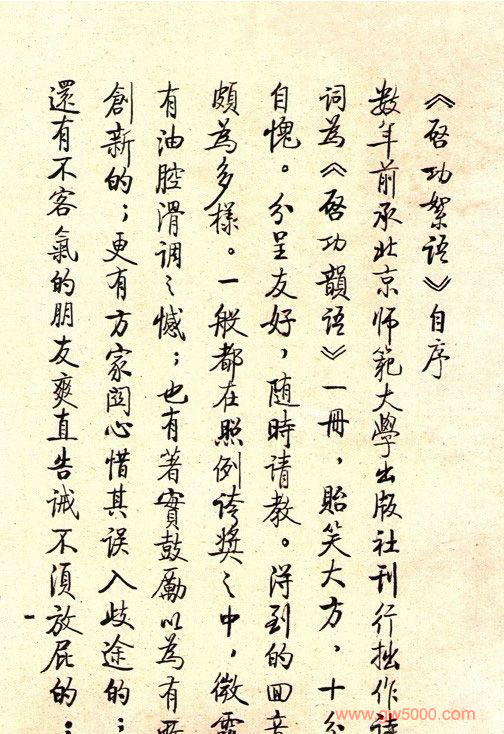 《啓功絮语》自序
数年前承北京师範大學出版社刊行拙作詩
词為《啓功韻语》一冊，貽笑大方，十分
自愧。分呈友好，随時请教。得到的回音
頗為多樣。一般都在照例誇獎之中，微露
有油腔滑调之憾；也有著實鼓勵以為有所
創新的；更有方家関心惜其误入歧途的；
還有不客氣的朋友爽直告诫不須放屁的；
www.gw5000.com